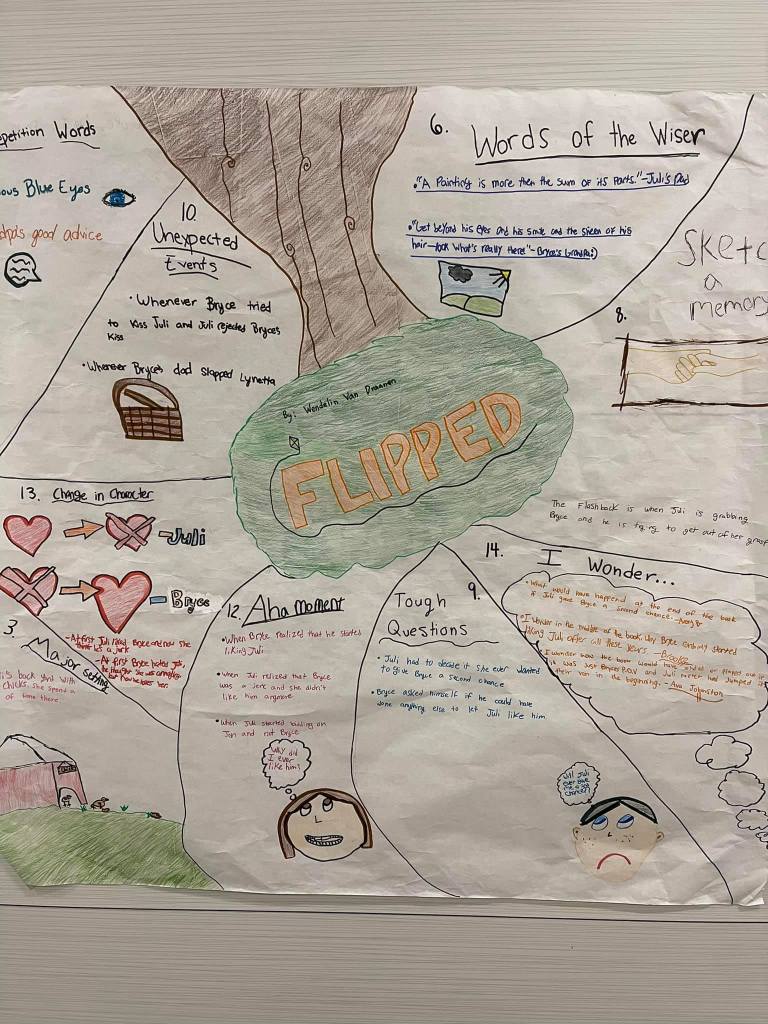 petition Words
ous Blue Eyes
good advice
10.
Unexpected
Events
• Whenever Bryce tried
to Kiss Juli and Juli rejected Bryces
Kiss
• Whenever Bryce's dad slapped Lynetta
6.
Words of the Wiser
• "A Painting is more then the sum of its Parts." -Juli's Dad
• "Get beyond his eyes and his smile and the sheen of his
hair-look what's really there" - Bryce's Grandpa:)
Sketc
a
memory
8.
The Flashback is when Juli is grabbing
Bryce and he is trying to get out of her grasp
By: Wendelin Van Draanen
FLIPPED
13. Change in Character
-Juli
- Bryce
-At first Juli liked Bryce and now she
thinks he's a jerk
-At first Bryce hated Juli,
he thought she was annoying
but now he loves her.
3.
Major setting
back yard with
chicks. she spend a
of time there
12. Aha moment
• When Bryce realized that he started
liking Juli
• When Juli relized that Bryce
was a jerk and she didn't
like him anymore
• When Juli started bidding on
Jon and not Bryce
Why did
I ever
like him?
9.
Tough
Questions
• Juli had to decide if she ever wanted
to give Bryce a second chance
• Bryce asked himself if he could have
done anything else to let Juli like him
14.
I Wonder...
• What would have happend at the end of the book
if Juli gave Bryce a second chance.
• I wonder in the middle of the book why Bryce
liking Juli after all these years.
I wonder how the book would have ended or played out if
it was just Bryces P.O.V and Juli never had jumped in
their van in the beginning. - Ava Johnston
Will Juli
ever give
me a 2nd
chance?